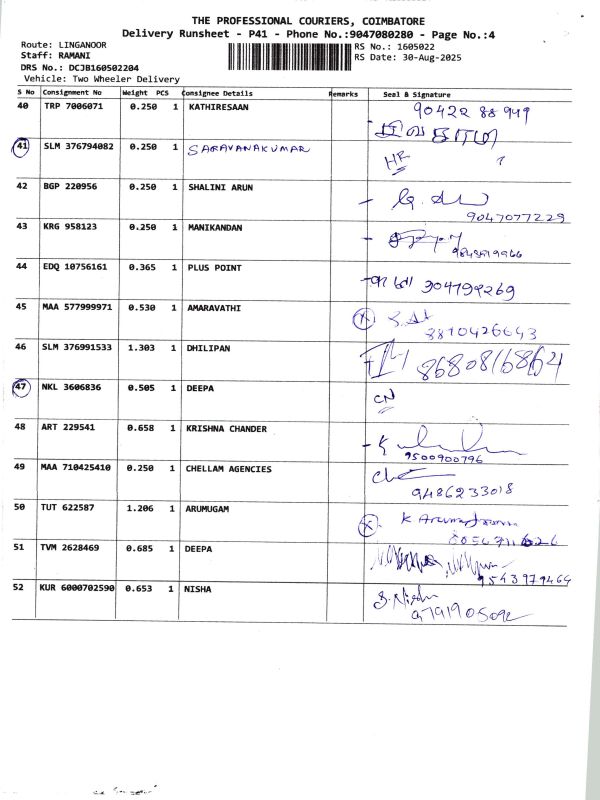 THE PROFESSIONAL COURIERS, COIMBATORE
Delivery Runsheet - P41 - Phone No.:9047080280 - Page No.:4
Route: LINGANOOR RS No.: 1605022
Staff: RAMANI RS Date: 30-Aug-2025
DRS No.: DCJB160502204
Vehicle: Two Wheeler Delivery
S No Consignment No Weight PCS Consignee Details Remarks Seal & Signature
40 TRP 7006071 0.250 1 KATHIRESAAN 90422 88949
41 SLM 376794082 0.250 1 SARAVANAKUMAR HF
42 BGP 220956 0.250 1 SHALINI ARUN
9047077229
43 KRG 958123 0.250 1 MANIKANDAN
44 EDQ 10756161 0.365 1 PLUS POINT 904799269
45 MAA 577999971 0.530 1 AMARAVATHI
8870426643
46 SLM 376991533 1.303 1 DHILIPAN 8680816864
47 NKL 3606836 0.505 1 DEEPA CN
48 ART 229541 0.658 1 KRISHNA CHANDER
9500900796
49 MAA 710425410 0.250 1 CHELLAM AGENCIES
9486233018
50 TUT 622587 1.206 1 ARUMUGAM
51 TVM 2628469 0.685 1 DEEPA
9543979464
52 KUR 6000702590 0.653 1 NISHA S. Nisha
9791905092